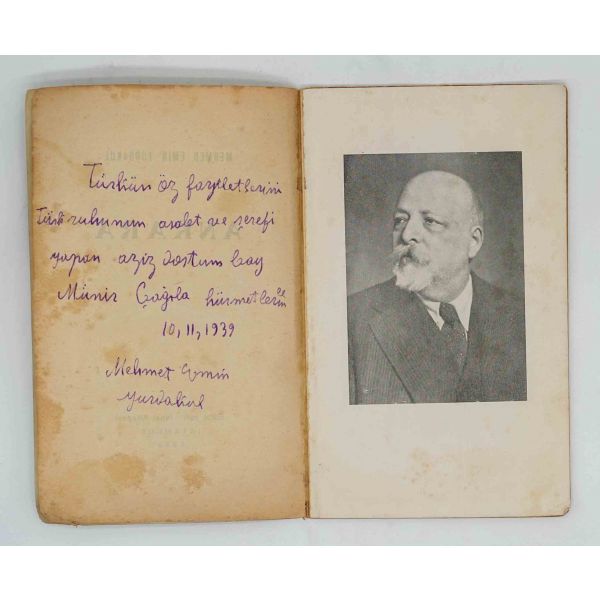 Türkün öz faziletlerini
Türk ruhunun asalet ve şerefi
yapan aziz dostum bay
Münir Çağıla hürmetlerimle
10, 11, 1939
Mehmet Emin
Yurdakul